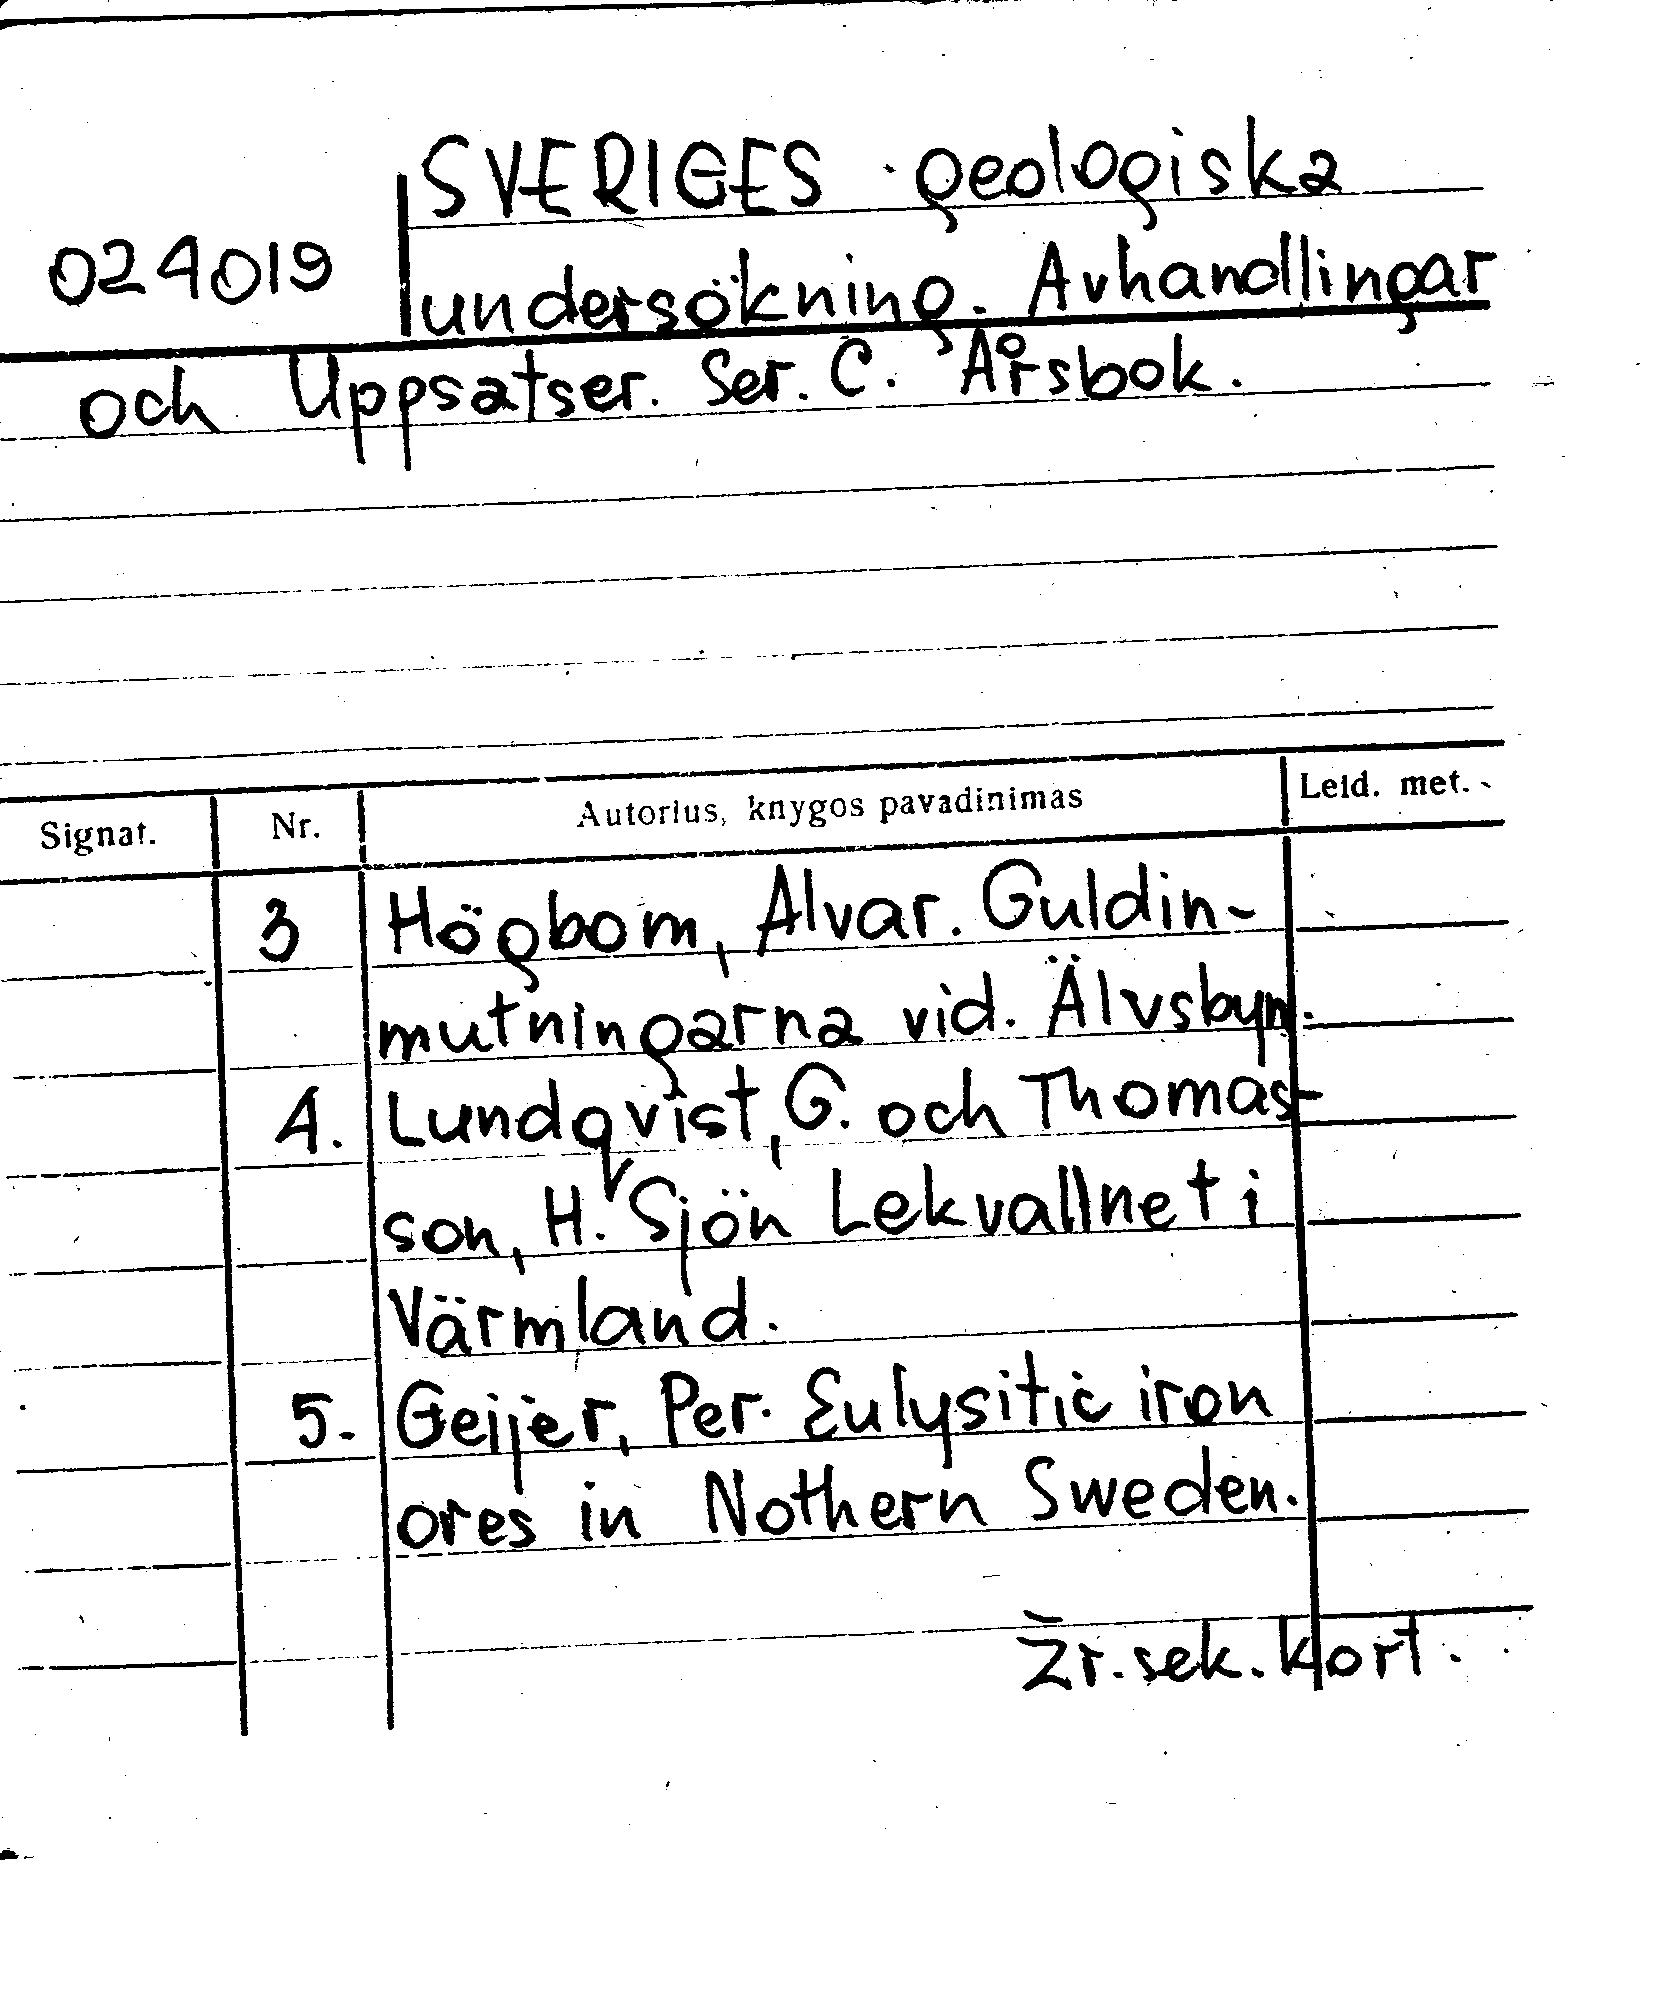 SVERIGES geologiska
024019 undersökning. Avhandlingar
och Uppsatser. Ser. C. Årsbok.
Signat. Nr. Autorius, knygos pavadinimas Leid. met.
3 Högbom, Alvar. Guldin-
mutningarna vid. Älvsbyn.
4. Lundqvist, G. och Thomas-
son, H. Sjön Lekvallnet i
Värmland.
5. Geijer, Per. Eulysitic iron
ores in Nothern Sweden.
Žr. sek. kort.